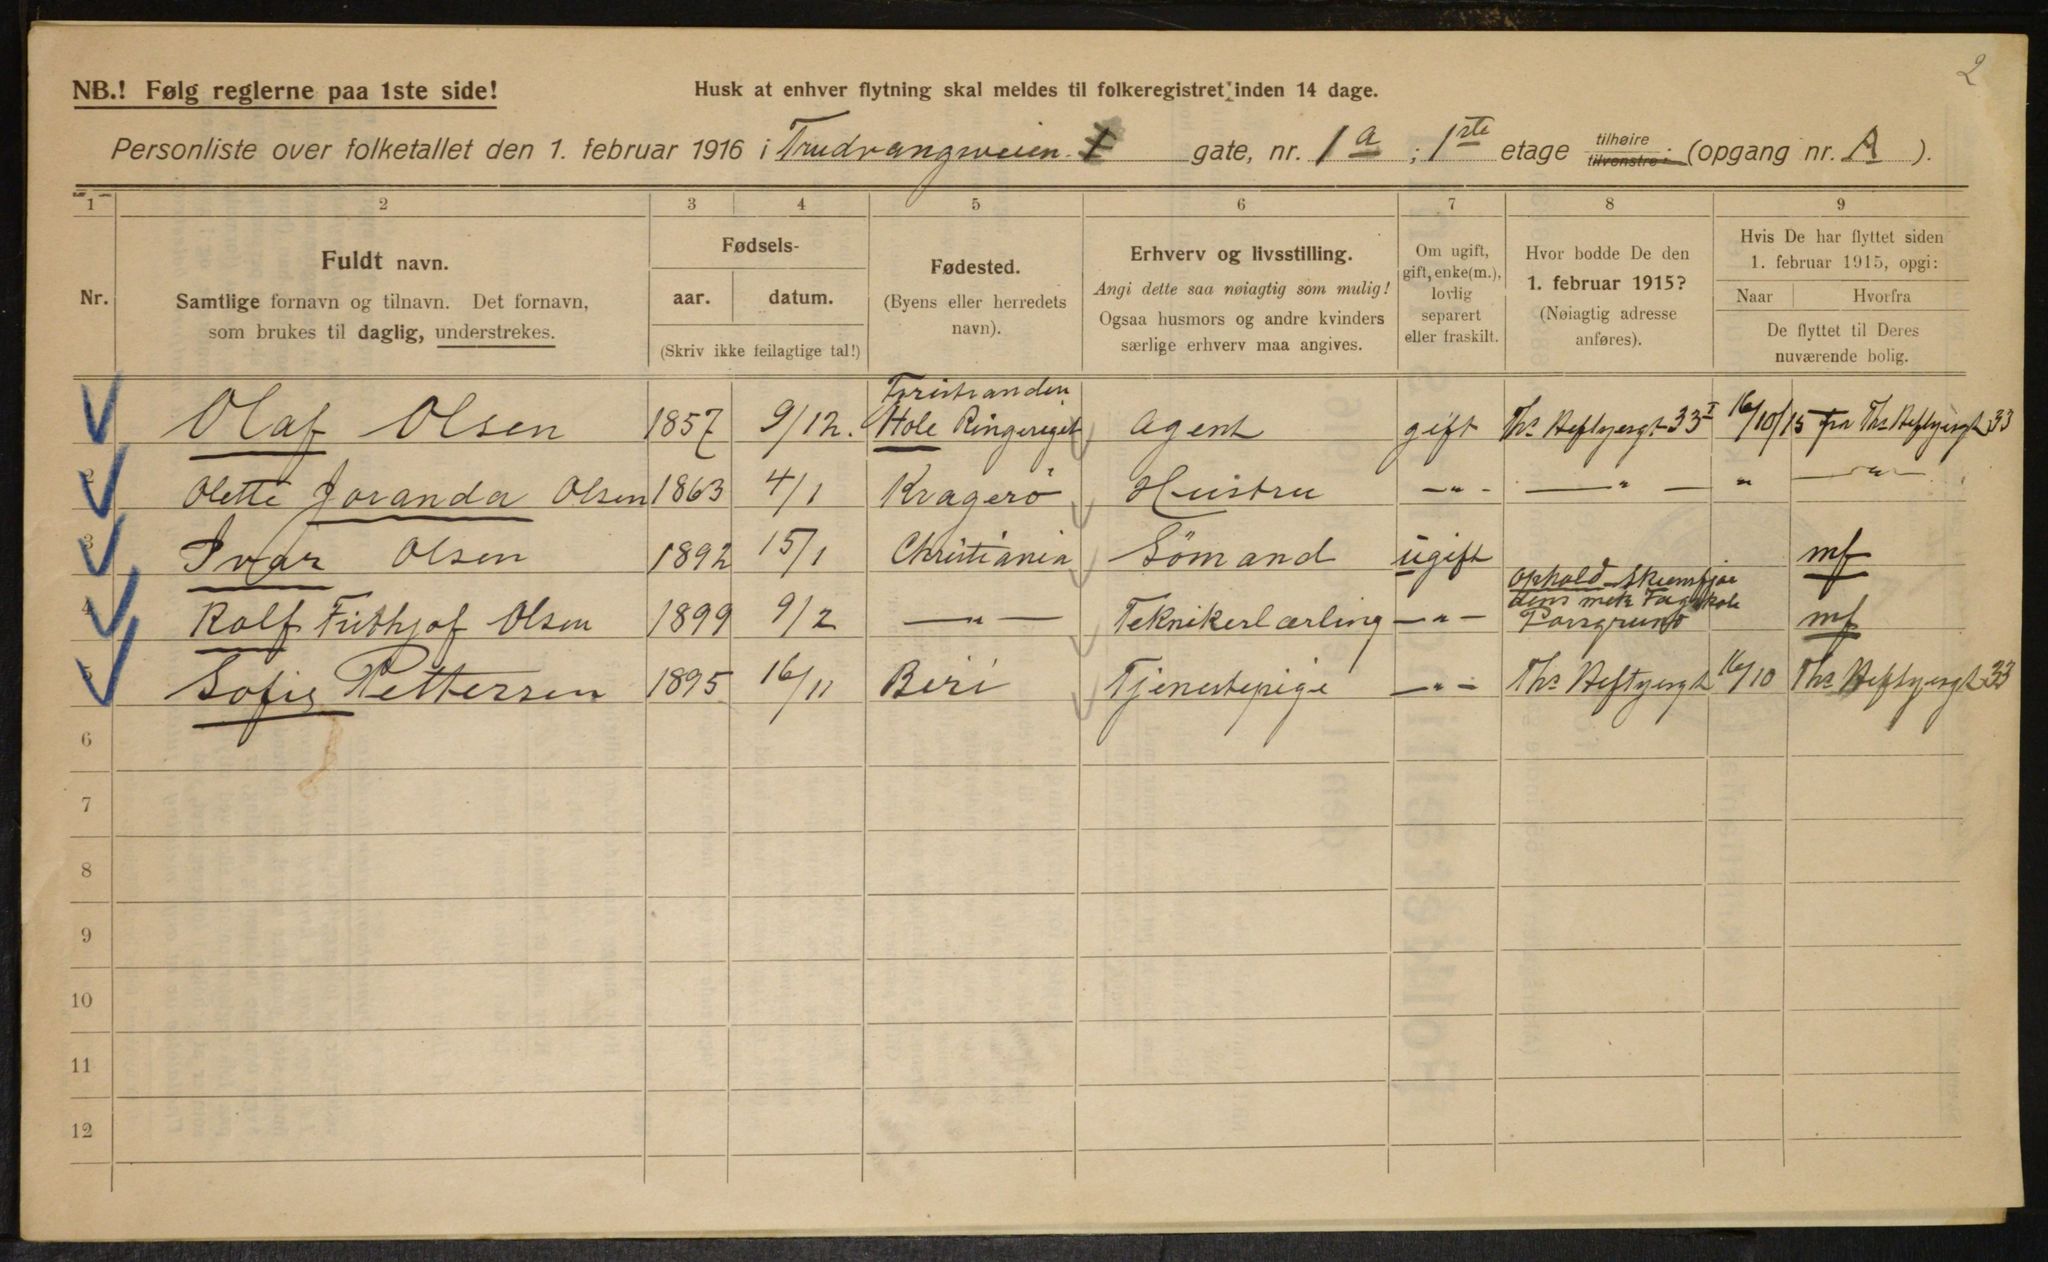 2
NB.! Følg reglerne paa 1ste side! Husk at enhver flytning skal meldes til folkeregistret inden 14 dage.
Personliste over folketallet den 1. februar 1916 i Trudvangsveien gate, nr. 1 a ; 1ste etage tilhøire tilvenstre; (opgang nr. A ).
1 2 3 4 5 6 7 8 9
Nr.
Fuldt navn.
Samtlige fornavn og tilnavn. Det fornavn,
som brukes til daglig, understrekes.
Fødsels-
aar. datum.
(Skriv ikke feilagtige tal!)
Fødested.
(Byens eller herredets
navn).
Erhverv og livsstilling.
Angi dette saa nøiagtig som mulig!
Ogsaa husmors og andre kvinders
særlige erhverv maa angives.
Om ugift,
gift, enke(m.),
lovlig
separert
eller fraskilt.
Hvor bodde De den
1. februar 1915?
(Nøiagtig adresse
anføres).
Hvis De har flyttet siden
1. februar 1915, opgi:
Naar Hvorfra
De flyttet til Deres
nuværende bolig.
Olaf Olsen 1857 9/12. Hole Ringeriget Agent gift Ths Heftyesgt 33 I 16/10/15 fra Ths Heftyesgt 33
2 Olette Joranda Olsen 1863 4/1 Kragerö Hustru —"— —"— " —"—
3 Ivar Olsen 1892 15/1 Christiania Sömand ugift mf
4 Rolf Frithjof Olsen 1899 9/2 —"— Teknikerlærling —"— Ophold Skiensfjor
dens mek Fagskole
Porsgrund mf
5 Sofie Pettersen 1895 16/11 Biri Tjenestepige —"— Ths Heftyesgt 16/10 Ths Heftyesgt 33
6
7
8
9
10
11
12